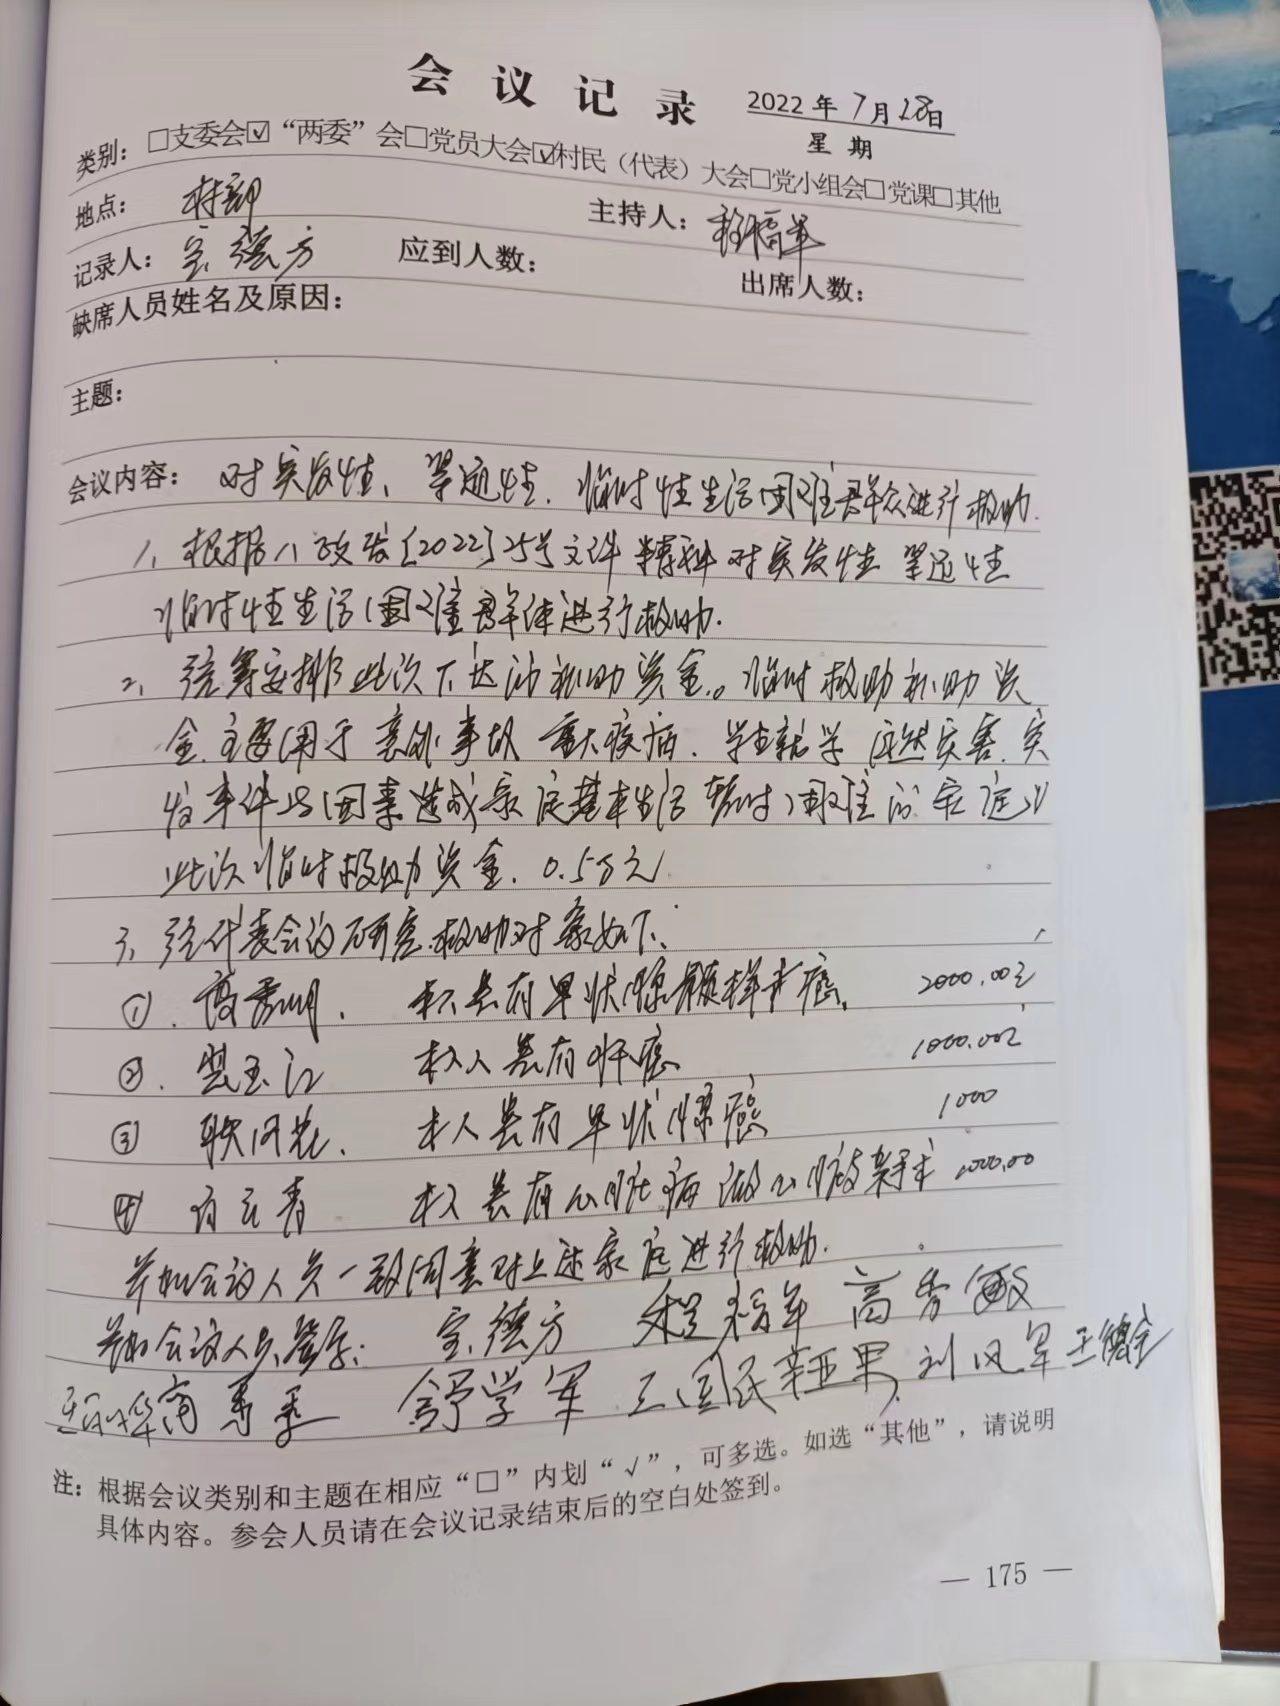 会议记录
2022年7月28日
星期
类别：□支委会☑“两委”会□党员大会☑村民（代表）大会□党小组会□党课□其他
地点：村部
主持人：程福军
记录人：宝德方 应到人数：
出席人数：
缺席人员姓名及原因：
主题：
会议内容：对突发性、紧迫性、临时性生活困难群众进行救助.
1、根据 政发〔2022〕25号文件精神 对突发性 紧迫性
临时性生活困难群体进行救助.
2、统筹安排此次下达的补助资金。临时救助补助资
金主要用于意外事故 重大疾病、学生就学 自然灾害、突
发事件 因素造成家庭基本生活暂时困难的家庭
此次临时救助资金.0.5万元
3、经代表会议研究.救助对象如下:
① 高秀明. 本人患有甲状腺 癌. 2000.00元
② 玉江 本人患有肝癌 1000.00元
③ 凤花. 本人患有甲状腺癌 1000
④ 青 本人患有心脏病做心脏支架手术 1000.00
参加会议人员一致同意对上述家庭进行救助.
参加会议人员签字: 宝德方 程福军 高秀敏
舒学军 王国民 辛亚男 刘凤军 王德全
注：根据会议类别和主题在相应“□”内划“√”，可多选。如选“其他”，请说明
具体内容。参会人员请在会议记录结束后的空白处签到。
— 175 —